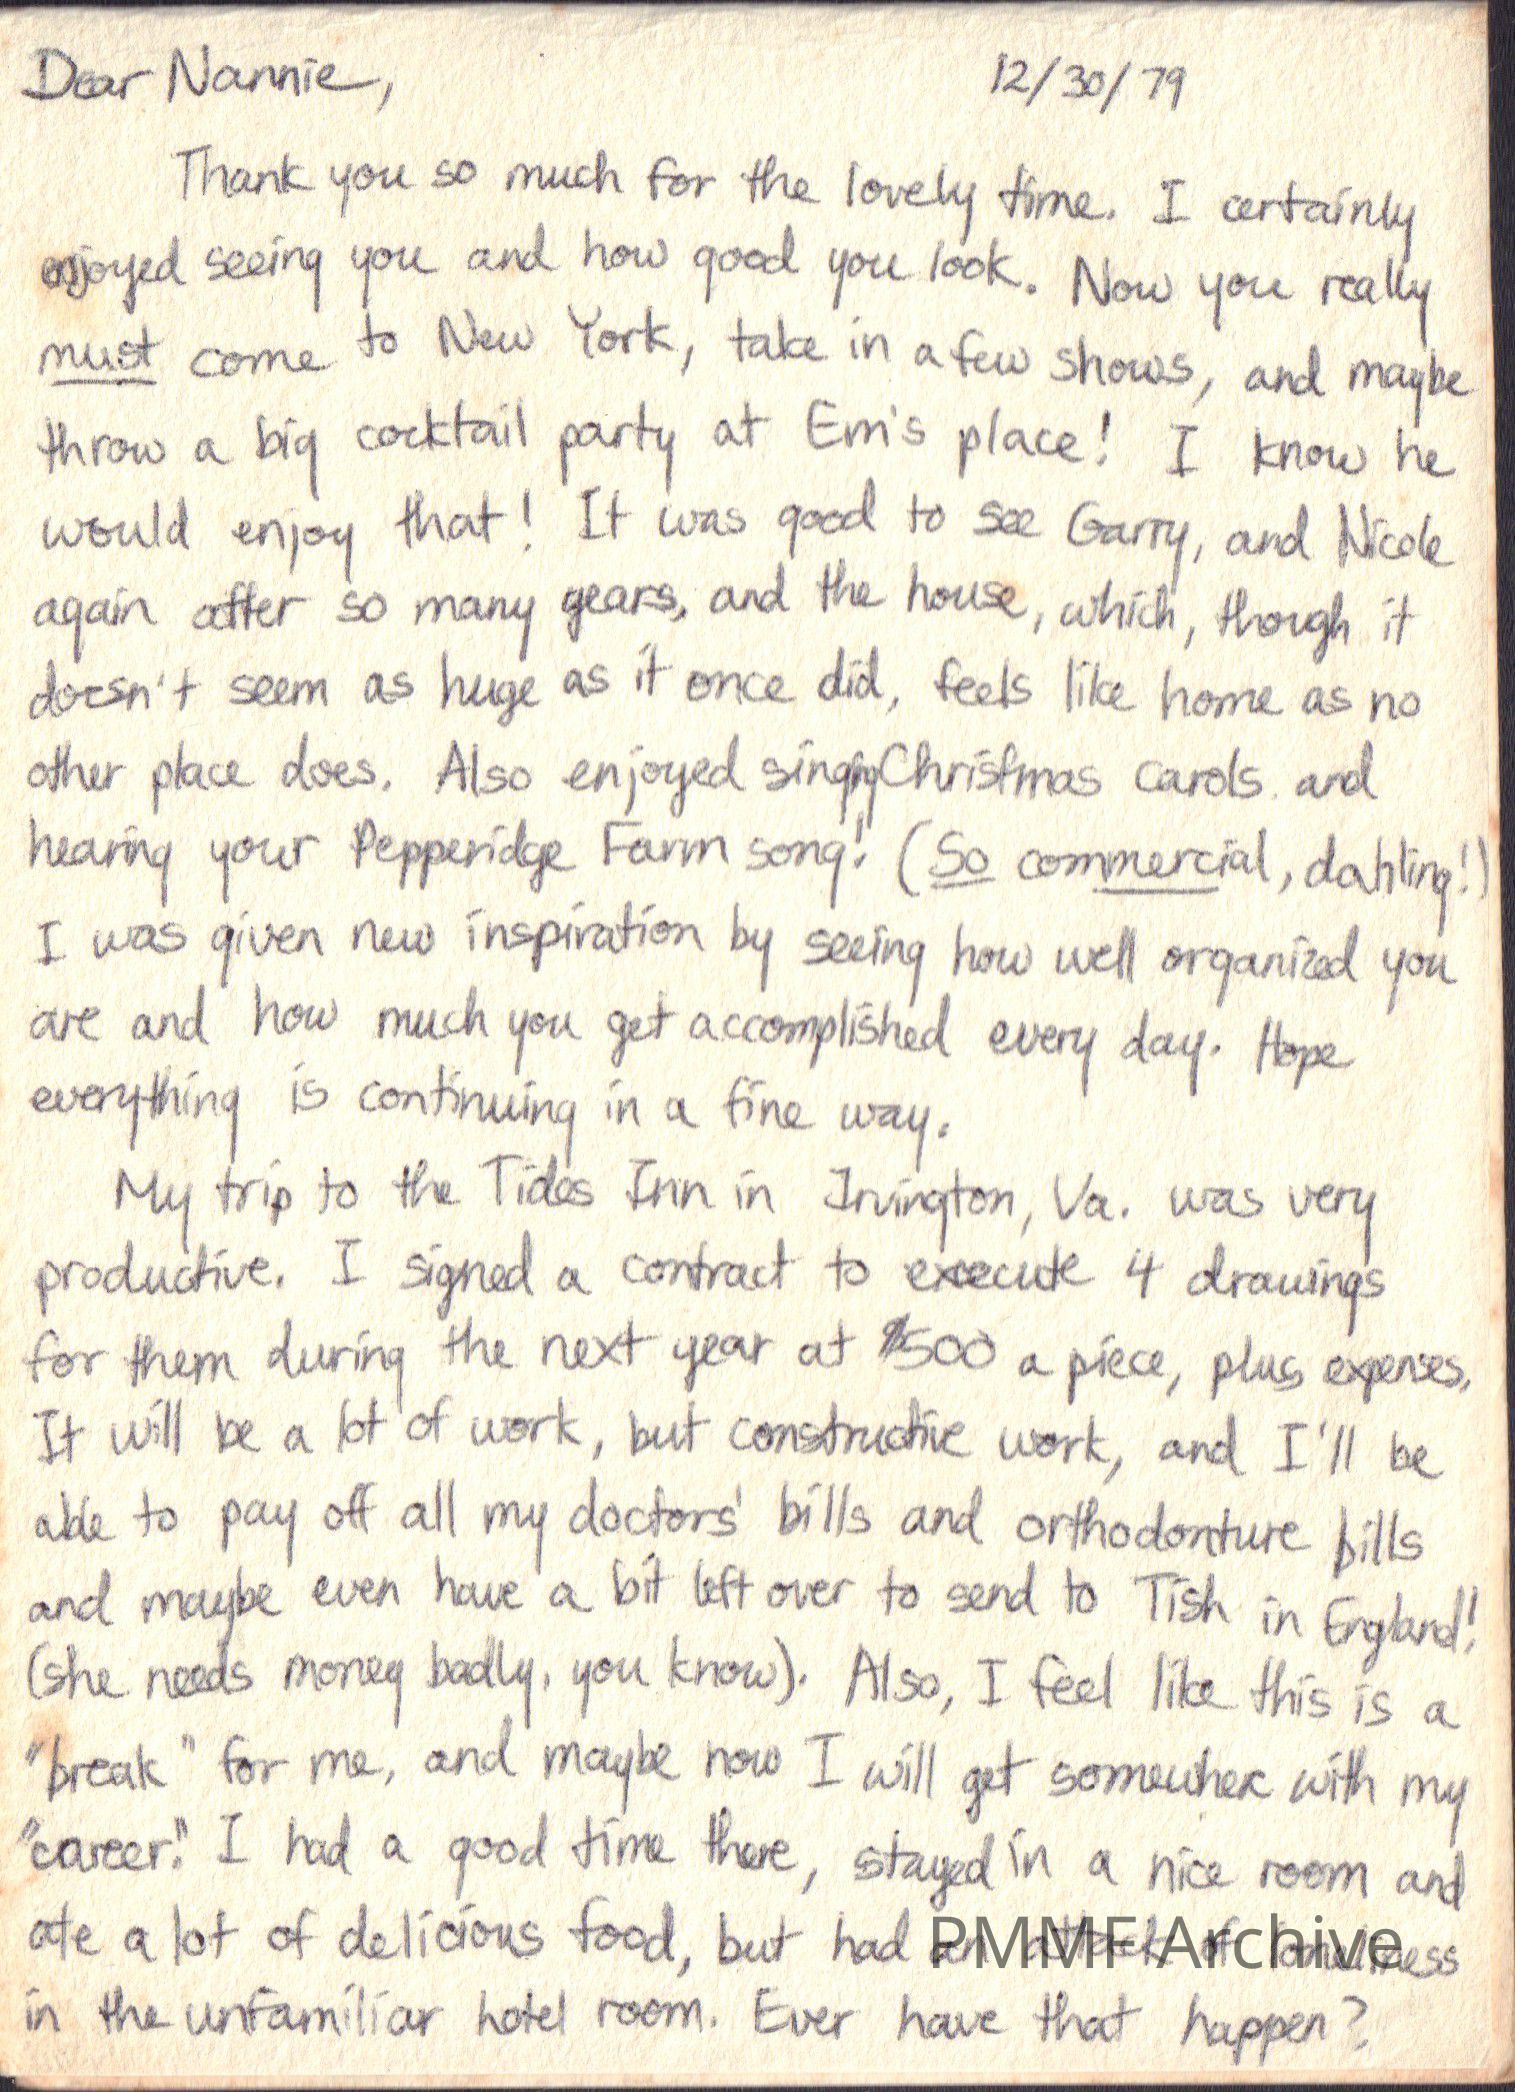 Dear Nannie, 12/30/79
Thank you so much for the lovely time. I certainly
enjoyed seeing you and how good you look. Now you really
must come to New York, take in a few shows, and maybe
throw a big cocktail party at Em's place! I know he
would enjoy that! It was good to see Garry, and Nicole
again after so many years, and the house, which, though it
doesn't seem as huge as it once did, feels like home as no
other place does. Also enjoyed singing Christmas carols and
hearing your Pepperidge Farm song! (So commercial, dahling!)
I was given new inspiration by seeing how well organized you
are and how much you get accomplished every day. Hope
everything is continuing in a fine way.
My trip to the Tides Inn in Irvington, Va. was very
productive. I signed a contract to execute 4 drawings
for them during the next year at $500 a piece, plus expenses.
It will be a lot of work, but constructive work, and I'll be
able to pay off all my doctors' bills and orthodonture bills
and maybe even have a bit left over to send to Tish in England!
(she needs money badly, you know). Also, I feel like this is a
"break" for me, and maybe now I will get somewhere with my
"career." I had a good time there, stayed in a nice room and
ate a lot of delicious food, but had an attack of loneliness
in the unfamiliar hotel room. Ever have that happen?
PMMF Archive